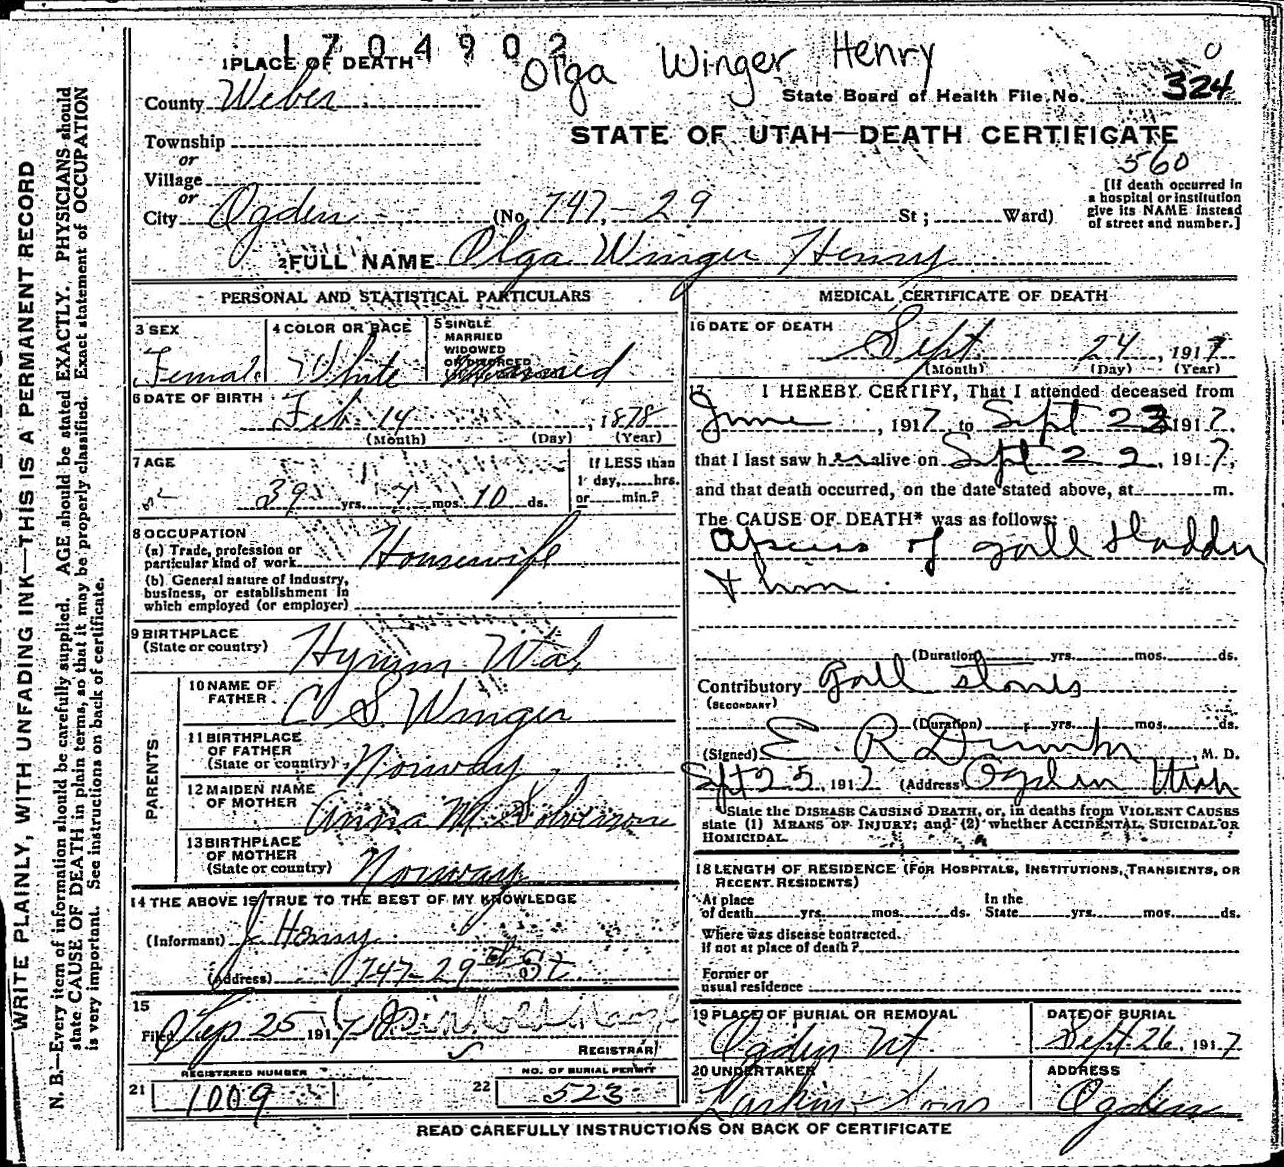 1704902
Olga Winger Henry
1 PLACE OF DEATH
County Weber
State Board of Health File No. 324
STATE OF UTAH—DEATH CERTIFICATE
560
Township
or
Village
or
City Ogden (No. 747 - 29 St; Ward)
[If death occurred in
a hospital or institution
give its NAME instead
of street and number.]
2 FULL NAME Olga Winger Henry
PERSONAL AND STATISTICAL PARTICULARS
3 SEX
Female
4 COLOR OR RACE
White
5 SINGLE
MARRIED
WIDOWED
OR DIVORCED
Married
6 DATE OF BIRTH
Feb. 14, 1878
(Month) (Day) (Year)
7 AGE
39 yrs. 7 mos. 10 ds.
If LESS than
1 day, hrs.
or min.?
8 OCCUPATION
(a) Trade, profession or
particular kind of work Housewife
(b) General nature of industry,
business, or establishment in
which employed (or employer)
9 BIRTHPLACE
(State or country) Hyrum Utah
PARENTS
10 NAME OF
FATHER C. S. Winger
11 BIRTHPLACE
OF FATHER
(State or country) Norway
12 MAIDEN NAME
OF MOTHER Anna M.
13 BIRTHPLACE
OF MOTHER
(State or country) Norway
14 THE ABOVE IS TRUE TO THE BEST OF MY KNOWLEDGE
(Informant) J. Henry
(Address) 747-29th St
15
Filed Sep 25 1917
REGISTRAR
REGISTERED NUMBER
21 1009
NO. OF BURIAL PERMIT
22 523
MEDICAL CERTIFICATE OF DEATH
16 DATE OF DEATH
Sept. 24 1917
(Month) (Day) (Year)
17 I HEREBY CERTIFY, That I attended deceased from
June, 1917, to Sept 23 1917,
that I last saw her alive on Sept 22, 1917,
and that death occurred, on the date stated above, at m.
The CAUSE OF DEATH* was as follows:
Abscess of gall bladder
(Duration) yrs. mos. ds.
Contributory Gall stones
(SECONDARY)
(Duration) yrs. mos. ds.
(Signed) E. R. M. D.
Sept 25, 1917 (Address) Ogden Utah
*State the DISEASE CAUSING DEATH, or, in deaths from VIOLENT CAUSES
state (1) MEANS OF INJURY; and (2) whether ACCIDENTAL, SUICIDAL OR
HOMICIDAL.
18 LENGTH OF RESIDENCE (FOR HOSPITALS, INSTITUTIONS, TRANSIENTS, OR
RECENT RESIDENTS)
At place
of death yrs. mos. ds.
In the
State yrs. mos. ds.
Where was disease contracted.
if not at place of death?
Former or
usual residence
19 PLACE OF BURIAL OR REMOVAL
Ogden Ut.
DATE OF BURIAL
Sept. 26, 1917
20 UNDERTAKER
Larkin & Sons
ADDRESS
Ogden
READ CAREFULLY INSTRUCTIONS ON BACK OF CERTIFICATE
WRITE PLAINLY, WITH UNFADING INK—THIS IS A PERMANENT RECORD
N. B.—Every item of information should be carefully supplied. AGE should be stated EXACTLY. PHYSICIANS should
state CAUSE OF DEATH in plain terms, so that it may be properly classified. Exact statement of OCCUPATION
is very important. See instructions on back of certificate.